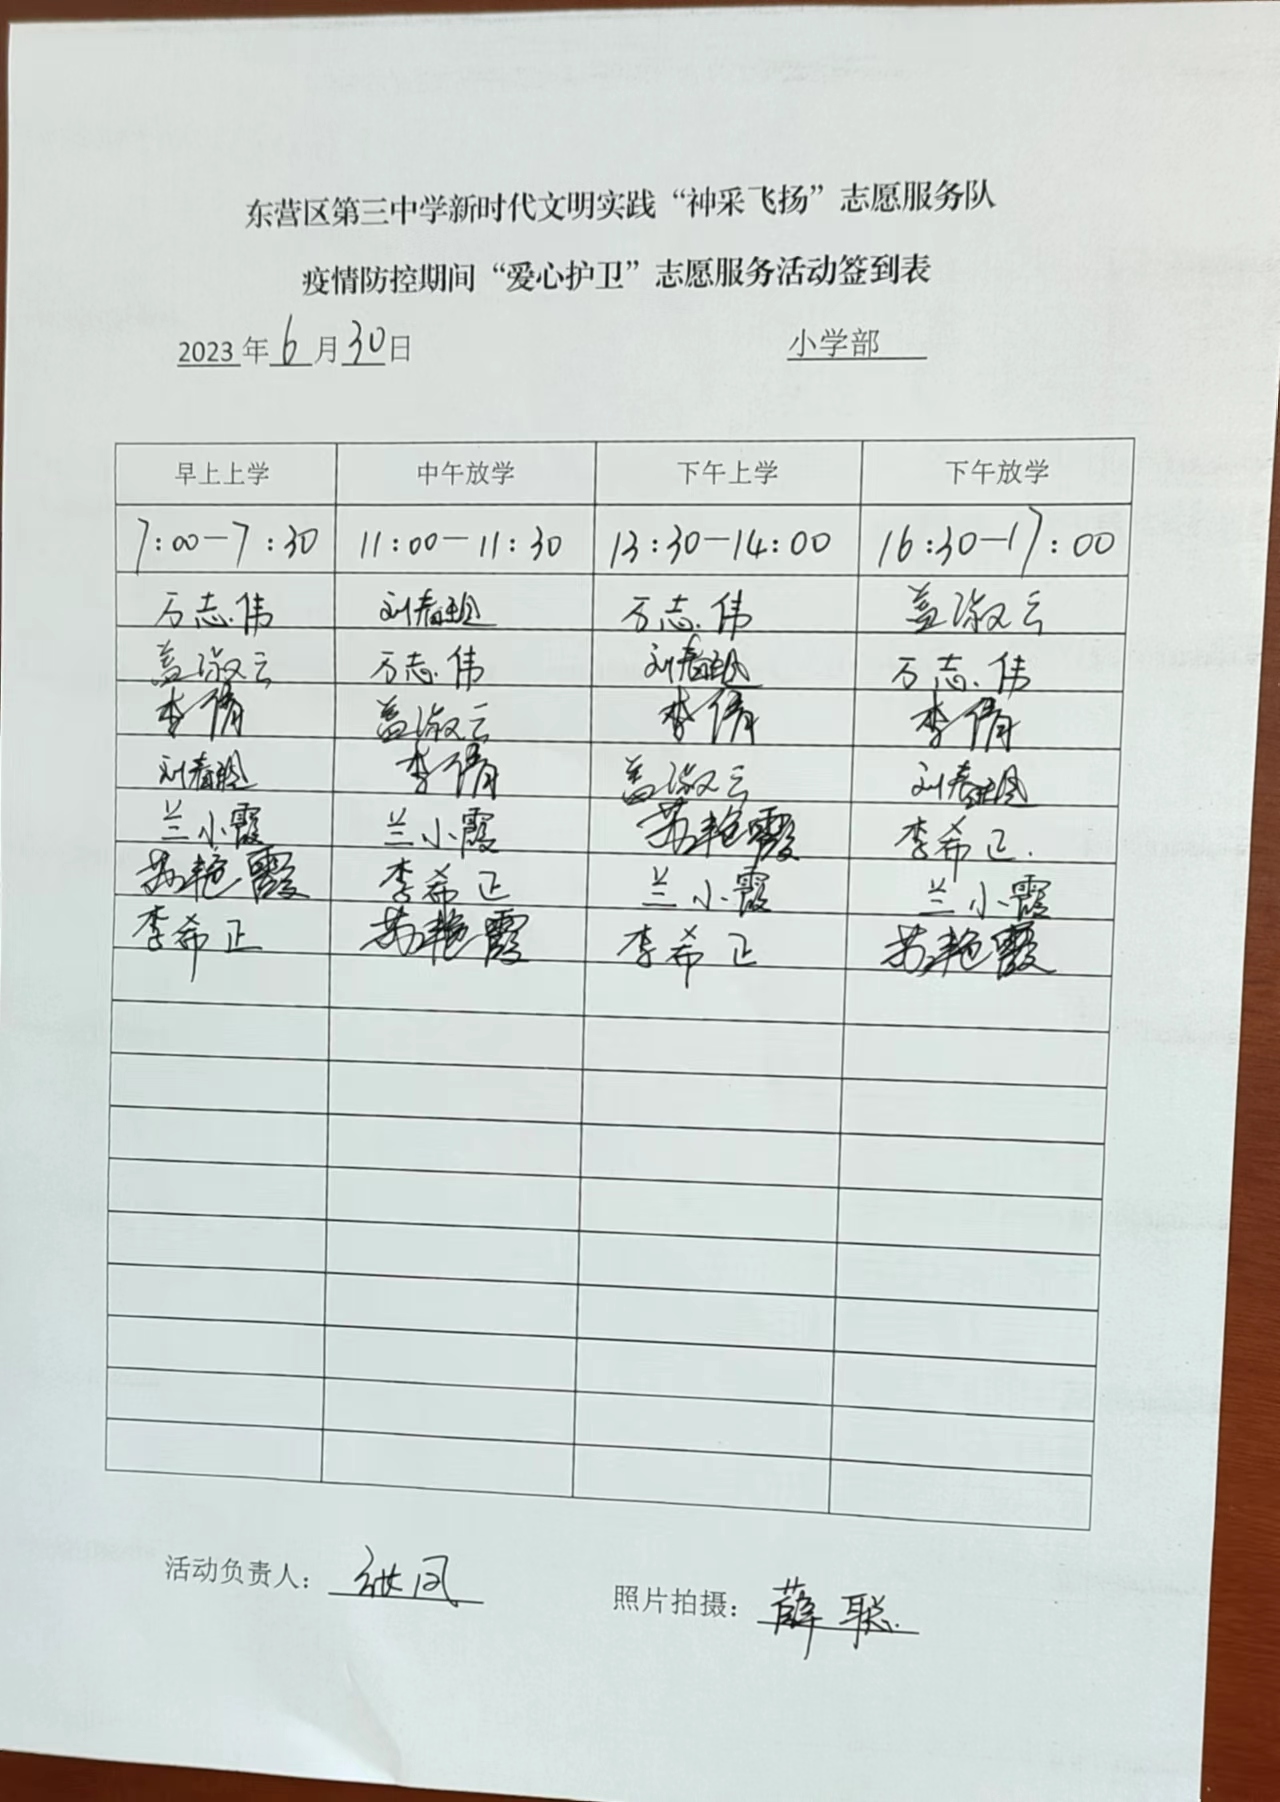 东营区第三中学新时代文明实践“神采飞扬”志愿服务队
疫情防控期间“爱心护卫”志愿服务活动签到表
2023年6月30日 小学部
早上上学 中午放学 下午上学 下午放学
7:00-7:30 11:00-11:30 13:30-14:00 16:30-17:00
万志伟 刘春 万志伟 盖淑云
盖淑云 万志伟 刘春 万志伟
李倩 盖淑云 李倩 李倩
刘春 李倩 盖淑云 刘春
兰小霞 兰小霞 苏艳霞 李希正.
苏艳霞 李希正 兰小霞 兰小霞
李希正 苏艳霞 李希正 苏艳霞
活动负责人: 凤 照片拍摄: 薛聪